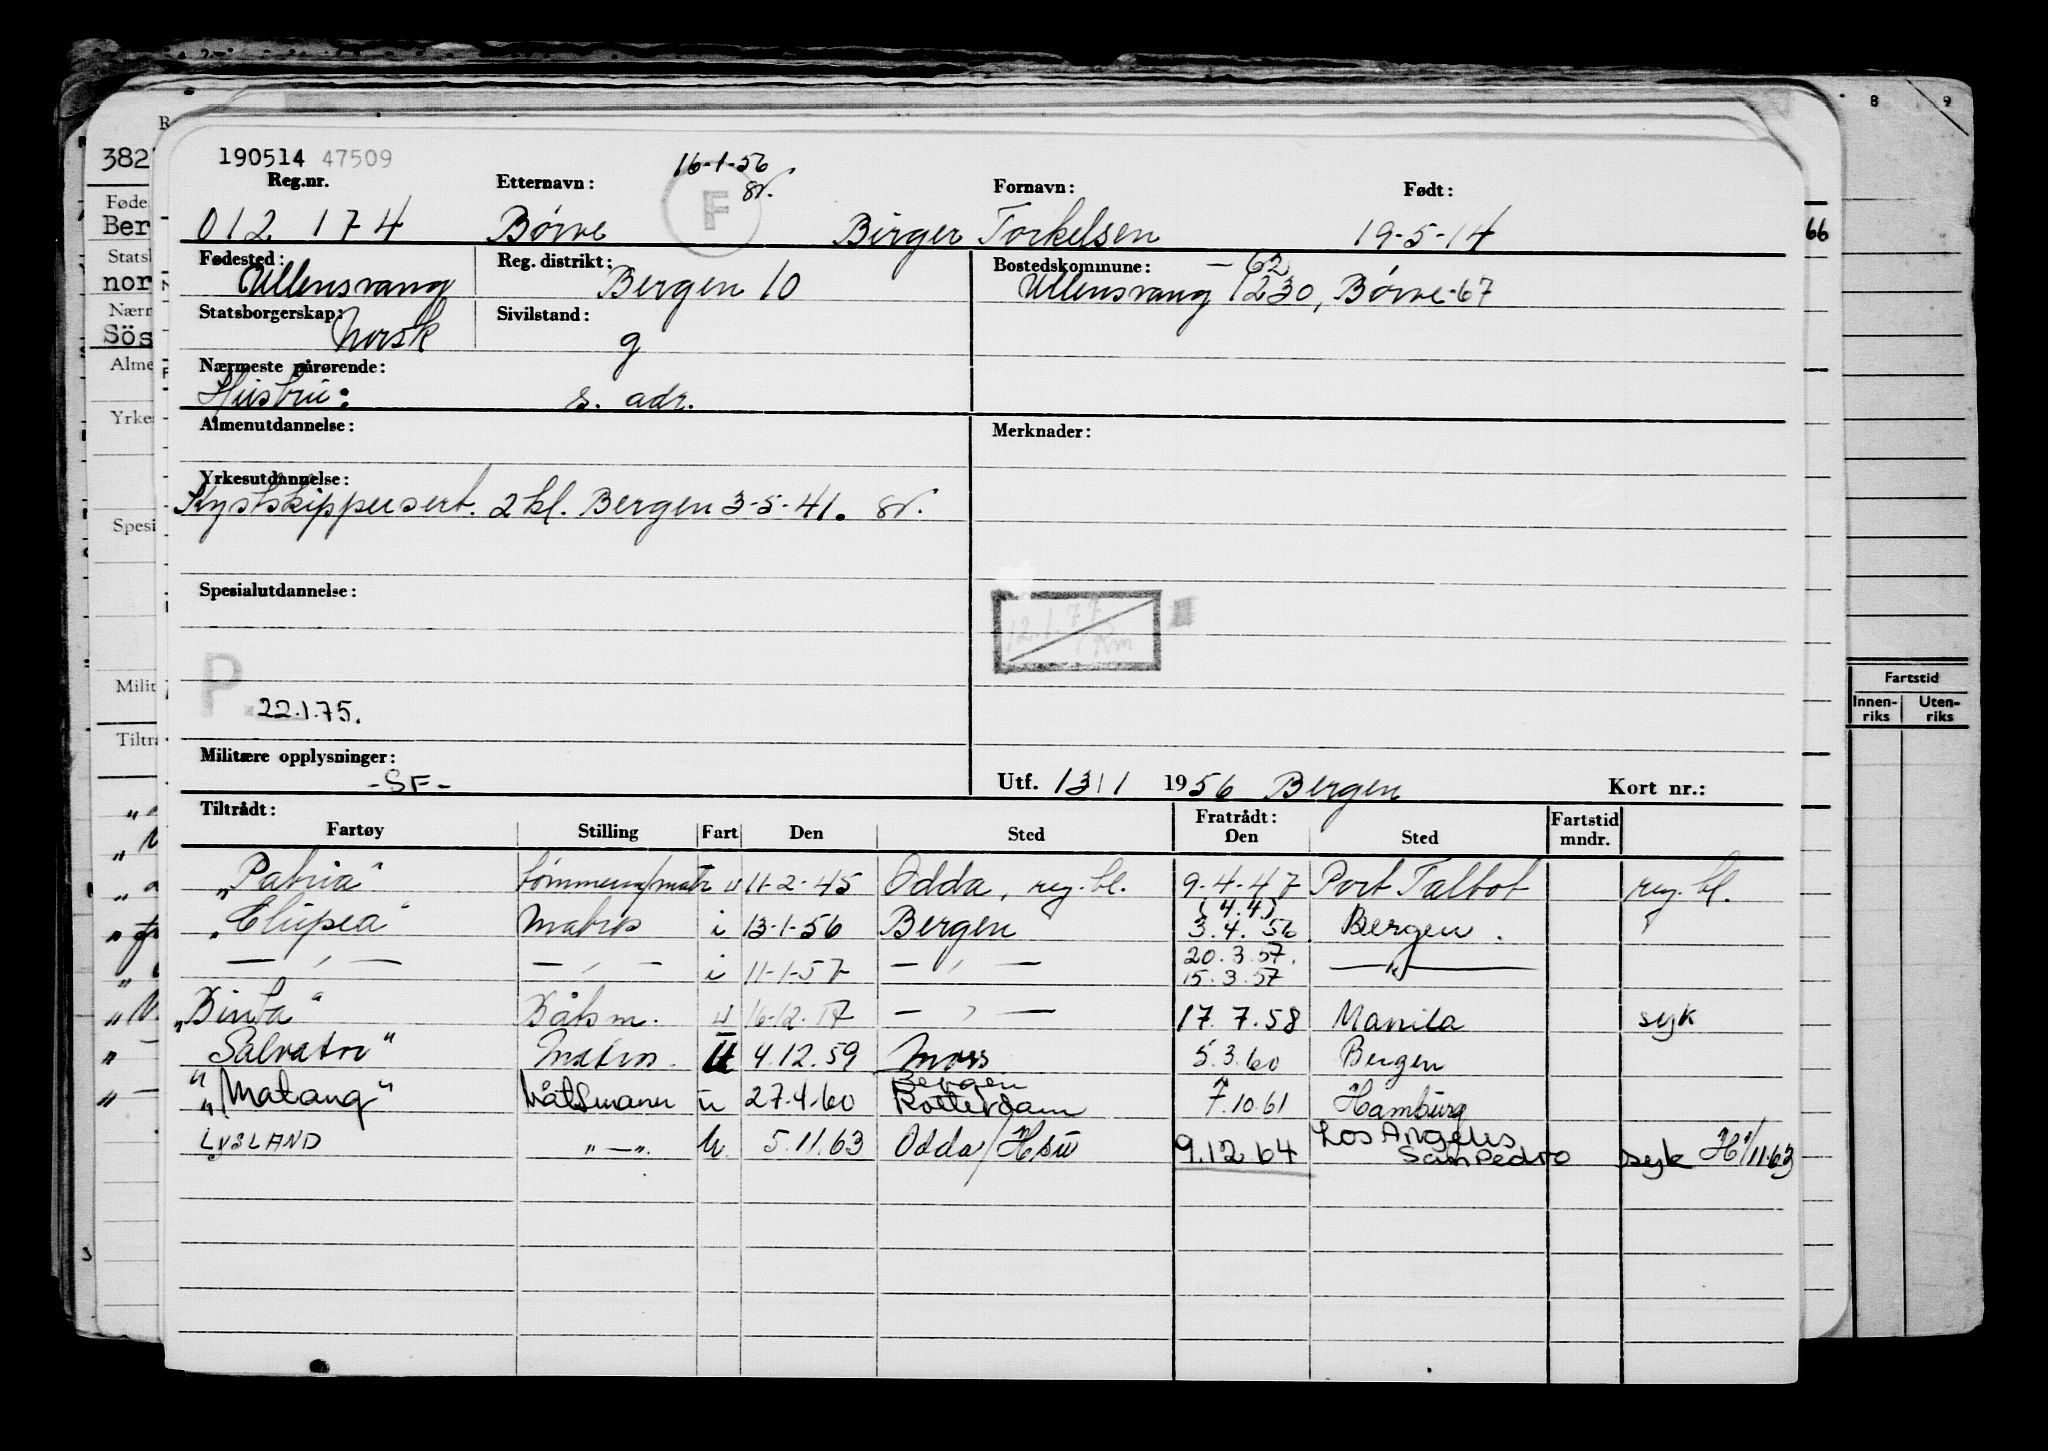 8 9
R
190514 47509
16-1-56
Reg.nr. Etternavn: F Fornavn: Født:
012 174 Børve Birger Torkelsen 19-5-14
382
66
Føde
Ber
Fødested: Reg. distrikt: Bostedskommune: -62
Ullensvang Bergen 10 Ullensvang 1230, Børve-67
Stats
nor
Statsborgerskap: Sivilstand:
Norsk g
Nærm
Sös
Nærmeste pårørende:
Hustru: s. adr.
Alme
Almenutdannelse: Merknader:
Yrke
Yrkesutdannelse:
Kystskippersert. 2 kl. Bergen 3-5-41.
Spesi
Spesialutdannelse:
12.1.77
Km
P.
22.1.75.
Milit
Fartstid
Innen-riks Uten-riks
Tiltr
Militære opplysninger:
-SF-
Utf. 13/1 1956 Bergen Kort nr.:
Tiltrådt: Fratrådt: Fartstid
Fartøy Stilling Fart Den Sted Den Sted mndr.
"Patria" tömmerm/matr u 11-2-45 Odda, reg. bl. 9-4-47 Port Talbot reg. bl.
(4.4)
"Clupea" Matros i 13-1-56 Bergen 3.4.56 Bergen.
20.3.57.
— " — — " — i 11-1-57 — " — 15.3.57 — " —
"Binta" Båtsm. u 16-12-57 — " — 17.7.58 Manila syk
"Salvator" Matros. U 4.12.59 Moss 5.3.60 Bergen
Bergen
"Matang" Båtsmann u 27.4.60 Rotterdam 7.10.61 Hamburg
Los Angeles
LYSLAND "—". u. 5.11.63 Odda/Hsu 9.12.64 San Pedro syk H/11.63
3